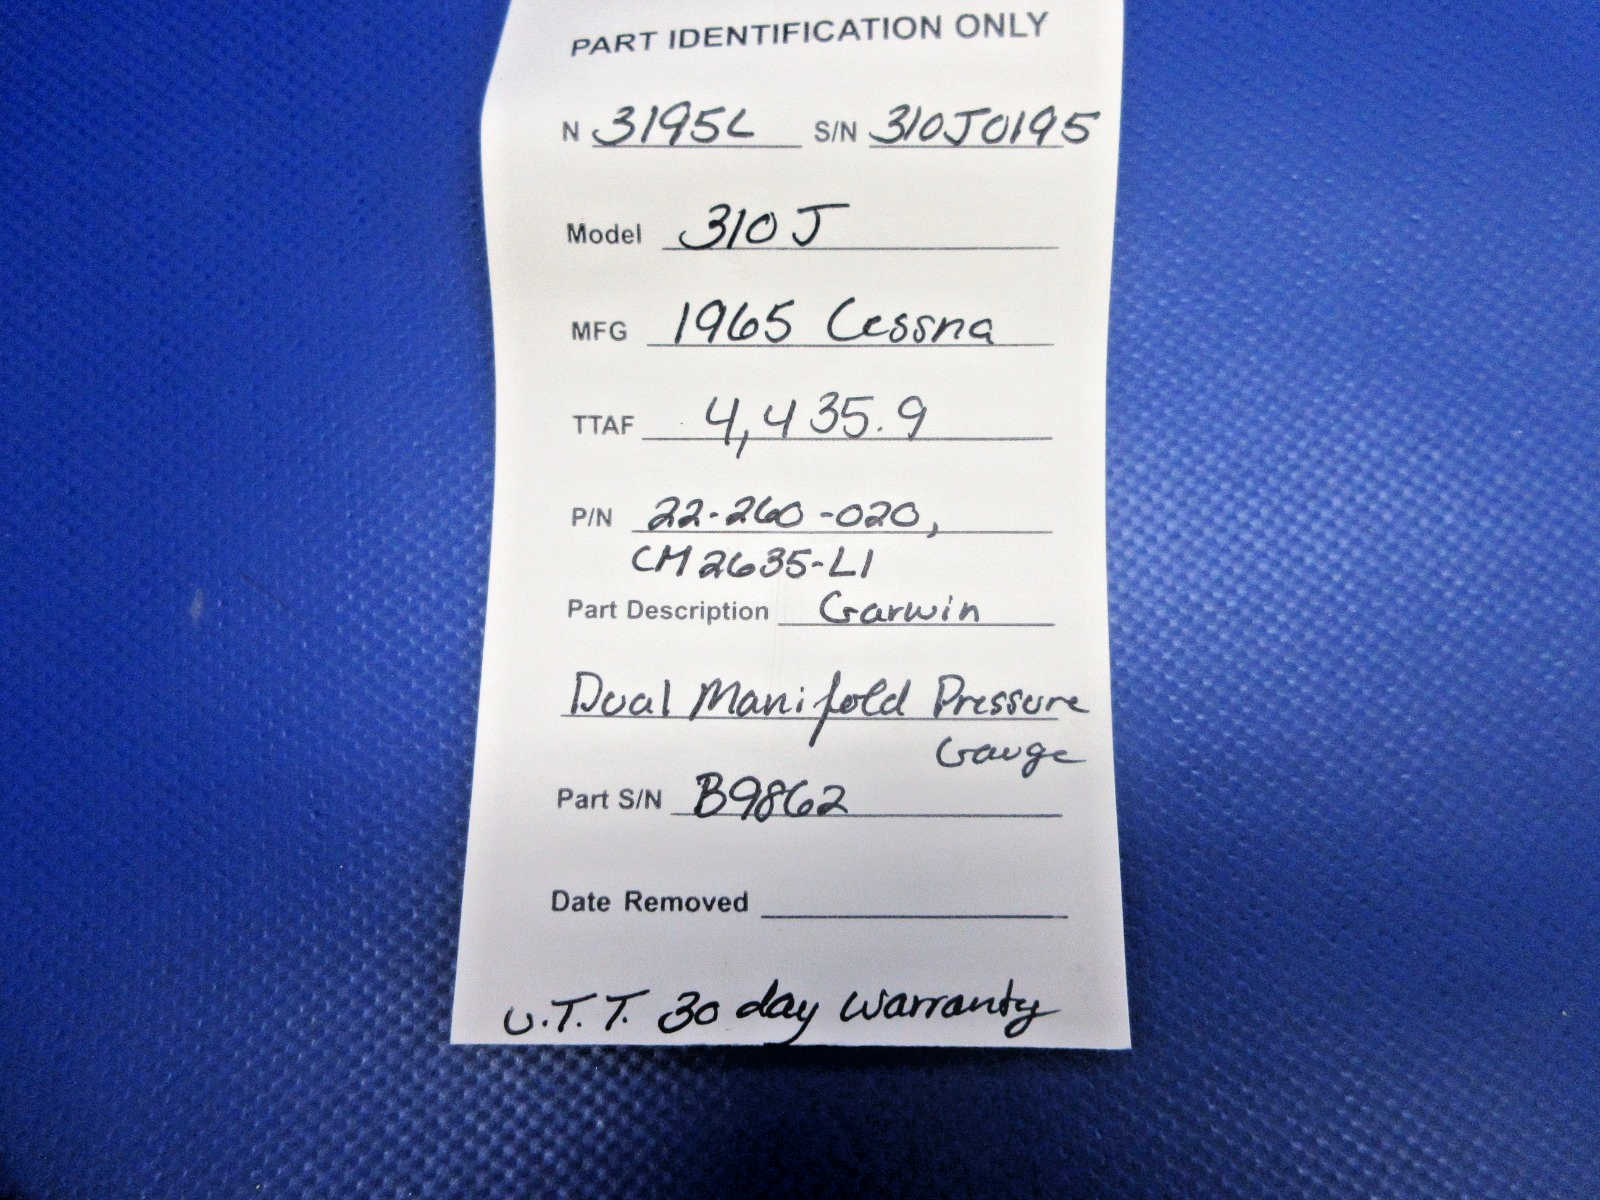 PART IDENTIFICATION ONLY
N 3195L S/N 310J0195
Model 310J
MFG 1965 Cessna
TTAF 4,435.9
P/N 22-260-020,
CM2635-L1
Part Description Garwin
Dual Manifold Pressure
Gauge
Part S/N B9862
Date Removed
U.T.T. 30 day warranty